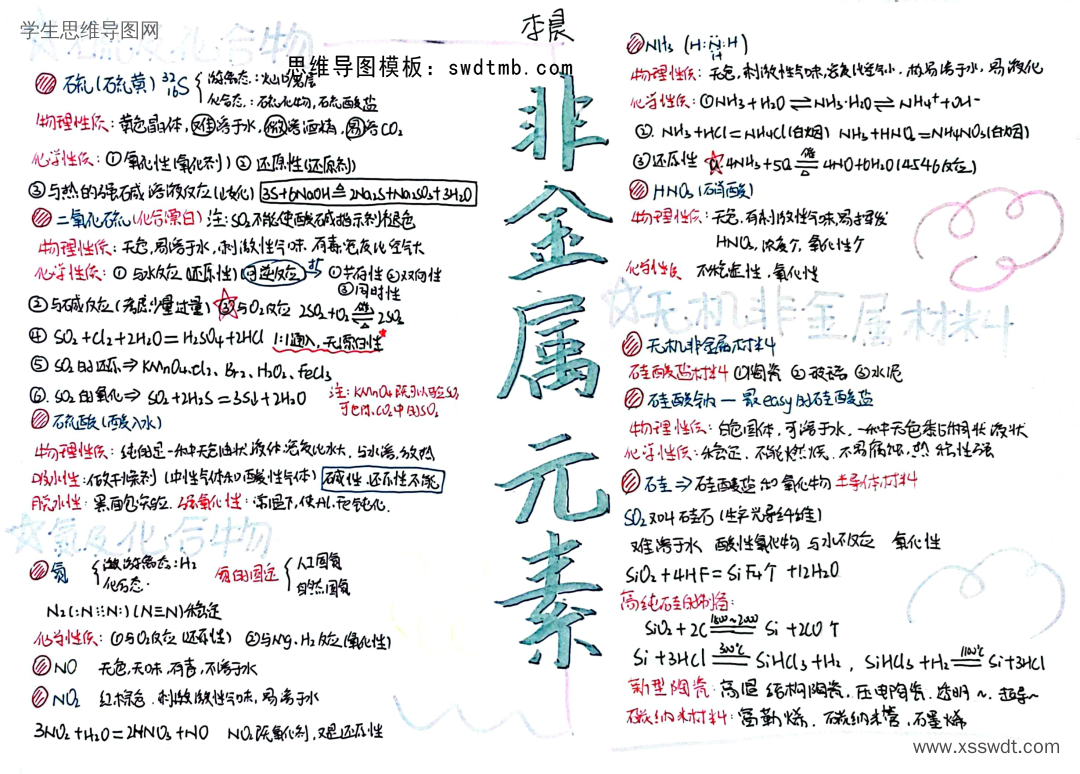 学生思维导图网
李晨
思维导图模板：swdtmb.com
非金属元素
硫及化合物
硫(硫黄) ³²₁₆S
游离态：火山口附近
化合态：硫化物，硫酸盐
物理性质：黄色晶体，难溶于水，微溶酒精，易溶CO₂
化学性质：①氧化性(氧化剂) ②还原性(还原剂)
③与热的强碱溶液反应(歧化) 3S+6NaOH≜2Na₂S+Na₂SO₃+3H₂O
二氧化硫(化合漂白) 注：SO₂不能使酸碱指示剂褪色
物理性质：无色，易溶于水，刺激性气味，有毒，密度比空气大
化学性质：①与水反应(还原性) 可逆反应 ①共存性 ②双向性
③同时性
②与碱反应(考虑少量过量) ③与O₂反应 2SO₂+O₂⇌2SO₃
④ SO₂+Cl₂+2H₂O=H₂SO₄+2HCl 1:1通入，无漂白性
⑤ SO₂的还原⇒KMnO₄.Cl₂、Br₂、H₂O₂、FeCl₃
⑥. SO₂的氧化⇒ SO₂+2H₂S=3S↓+2H₂O
注：KMnO₄既可以验SO₂
可也除CO₂中的SO₂
硫酸(酸入水)
物理性质：纯的是一种无色油状液体，密度比水大，与水溶，放热
吸水性：做干燥剂(中性气体和酸性气体) 碱性，还原性不能
脱水性：黑面包实验. 强氧化性：常温下，使Al、Fe钝化.
氮及化合物
氮
游离态：N₂
化合态：
氮的固定
人工固氮
自然固氮
N₂(:N⋮⋮N:)(N≡N)稳定
化学性质：①与O₂反应(还原性) ②与Mg、H₂反应(氧化性)
NO 无色，无味，有毒，不溶于水
NO₂ 红棕色．刺激性气味，易溶于水
3NO₂+H₂O=2HNO₃+NO NO₂既氧化剂，又是还原性
NH₃ (H:N:H)
H
物理性质：无色，刺激性气味，密度比空气小，极易溶于水，易液化
化学性质：①NH₃+H₂O⇌NH₃·H₂O⇌NH₄⁺+OH⁻
②. NH₃+HCl=NH₄Cl(白烟) NH₃+HNO₃=NH₄NO₃(白烟)
③还原性 a.4NH₃+5O₂ 催 △ 4NO+6H₂O(4546反应)
HNO₃(硝酸)
物理性质：无色，有刺激性气味，易挥发
HNO₃，浓度↑，氧化性↑
化学性质 不稳定性，氧化性
无机非金属材料
无机非金属材料
硅酸盐材料 ①陶瓷 ②玻璃 ③水泥
硅酸钠 — 最easy的硅酸盐
物理性质：白色固体，可溶于水，一种无色粘稠状液状
化学性质：稳定，不能燃烧，不易腐蚀，热稳定性强
硅⇒硅酸盐和氧化物 半导体材料
SO₂又叫硅石(生产光导纤维)
难溶于水 酸性氧化物 与水不反应 氧化性
SiO₂+4HF=SiF₄↑+2H₂O
高纯硅的制备：
SiO₂+2C 1800~2000 Si+2CO↑
Si+3HCl 300℃ SiHCl₃+H₂，SiHCl₃+H₂ 1100℃ Si+3HCl
新型陶瓷：高温结构陶瓷，压电陶瓷，透明~，超导~
碳纳米材料：富勒烯，碳纳米管，石墨烯
www.xsswdt.com